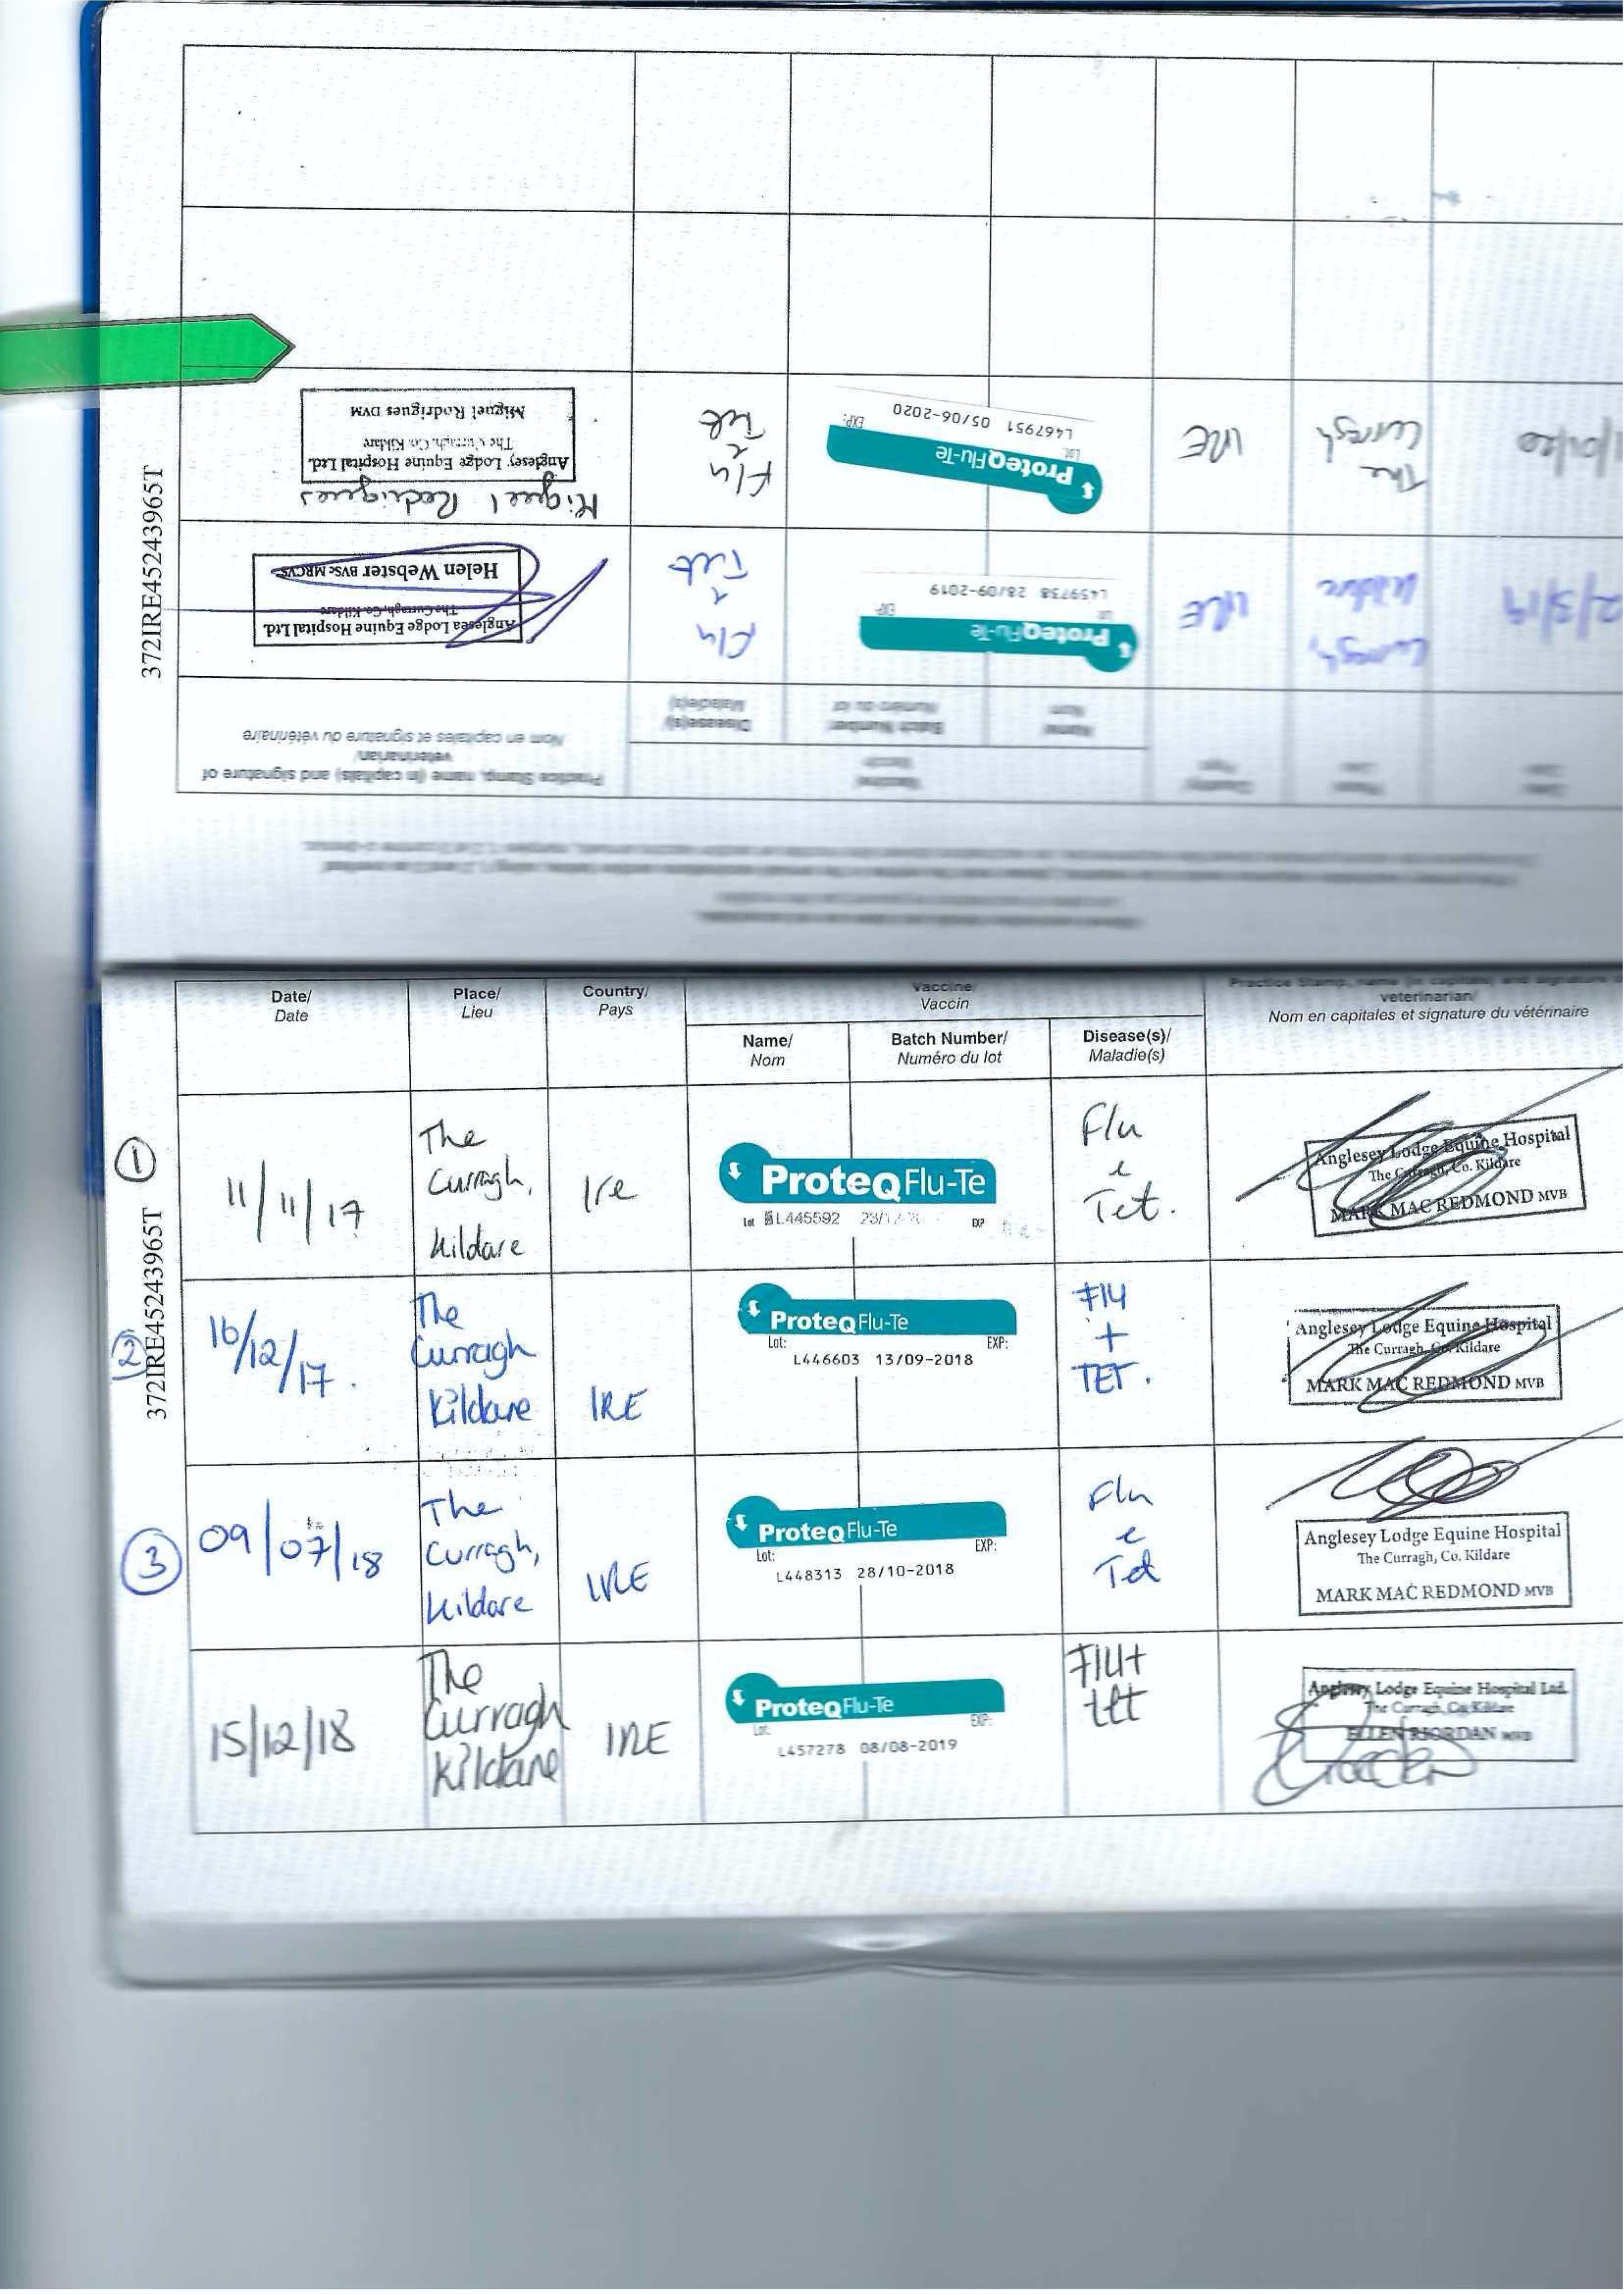 Practice Stamp, name (in capitals) and signature of
veterinarian/
Nom en capitales et signature du vétérinaire
Disease(s)/
Maladie(s)
Vaccine/
Vaccin
Batch Number/
Numéro du lot
Name/
Nom
Country/
Pays
Place/
Lieu
Date/
Date
372IRE45243965T
2/3/19
Curragh,
Kildare
IRE
ProteqFlu-Te
EXP
L459758 28/09-2019
Flu
Tet
Anglesea Lodge Equine Hospital Ltd.
The Curragh, Co. Kildare
Helen Webster BVSc MRCVS
The
Curragh
IRE
ProteqFlu-Te
LOT EXP:
L467951 05/06-2020
Flu
Tet
Miguel Rodrigues
Anglesey Lodge Equine Hospital Ltd.
The Curragh, Co. Kildare
Miguel Rodrigues DVM
Date/
Date
Place/
Lieu
Country/
Pays
Vaccine/
Vaccin
Name/
Nom
Batch Number/
Numéro du lot
Disease(s)/
Maladie(s)
veterinarian/
Nom en capitales et signature du vétérinaire
372IRE45243965T
1
11/11/17
The
Curragh,
Kildare
Ire
ProteqFlu-Te
Lot L445592 EXP
Flu
Tet.
Anglesey Lodge Equine Hospital
The Curragh, Co. Kildare
MARK MAC REDMOND MVB
2
16/12/17.
The
Curragh
Kildare
IRE
ProteqFlu-Te
Lot: EXP:
L446603 13/09-2018
Flu
+
TET.
Anglesey Lodge Equine Hospital
The Curragh, Co. Kildare
MARK MAC REDMOND MVB
3
09/07/18
The
Curragh,
Kildare
IRE
ProteqFlu-Te
Lot: EXP:
L448313 28/10-2018
Flu
Tet
Anglesey Lodge Equine Hospital
The Curragh, Co. Kildare
MARK MAC REDMOND MVB
15/12/18
The
Curragh
Kildare
IRE
ProteqFlu-Te
Lot: EXP:
L457278 08/08-2019
Flu+
tet
Anglesey Lodge Equine Hospital Ltd.
The Curragh, Co Kildare
ELLEN RIORDAN MVB